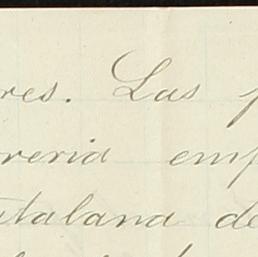 res. Las p
reria emp
atalana de